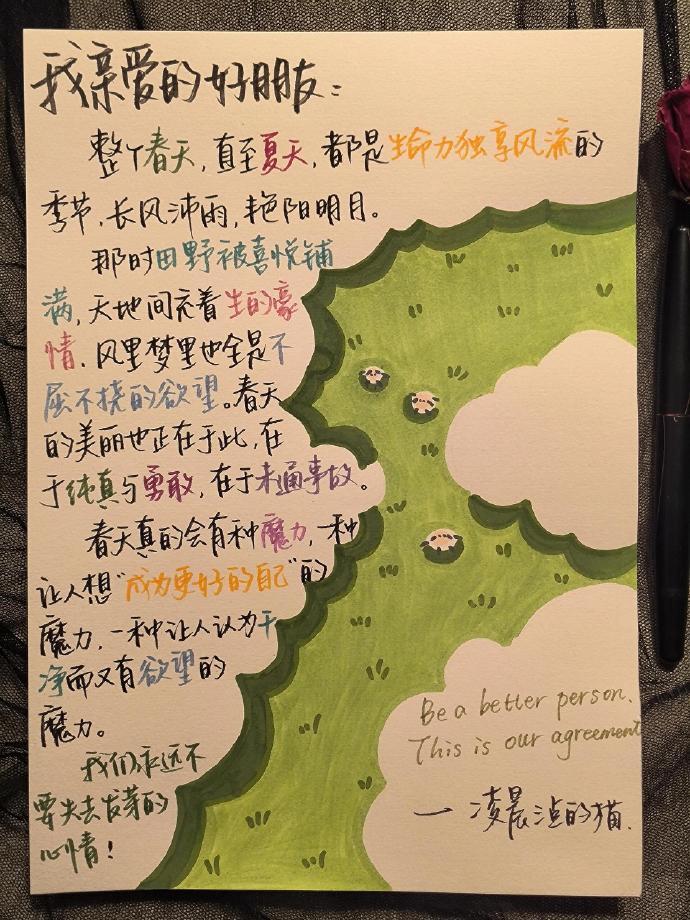 我亲爱的好朋友：
整个春天，直至夏天，都是生命力独享风流的
季节，长风沛雨，艳阳明月。
那时田野被喜悦铺
满，天地间充着生的豪
情，风里梦里也全是不
屈不挠的欲望。春天
的美丽也正在于此，在
于纯真与勇敢，在于未通事故。
春天真的会有种魔力，一种
让人想“成为更好的自己”的
魔力，一种让人认为干
净而又有欲望的
魔力。
我们永远不
要失去发芽的
心情！
Be a better person.
This is our agreement
一 凌晨 的猫.